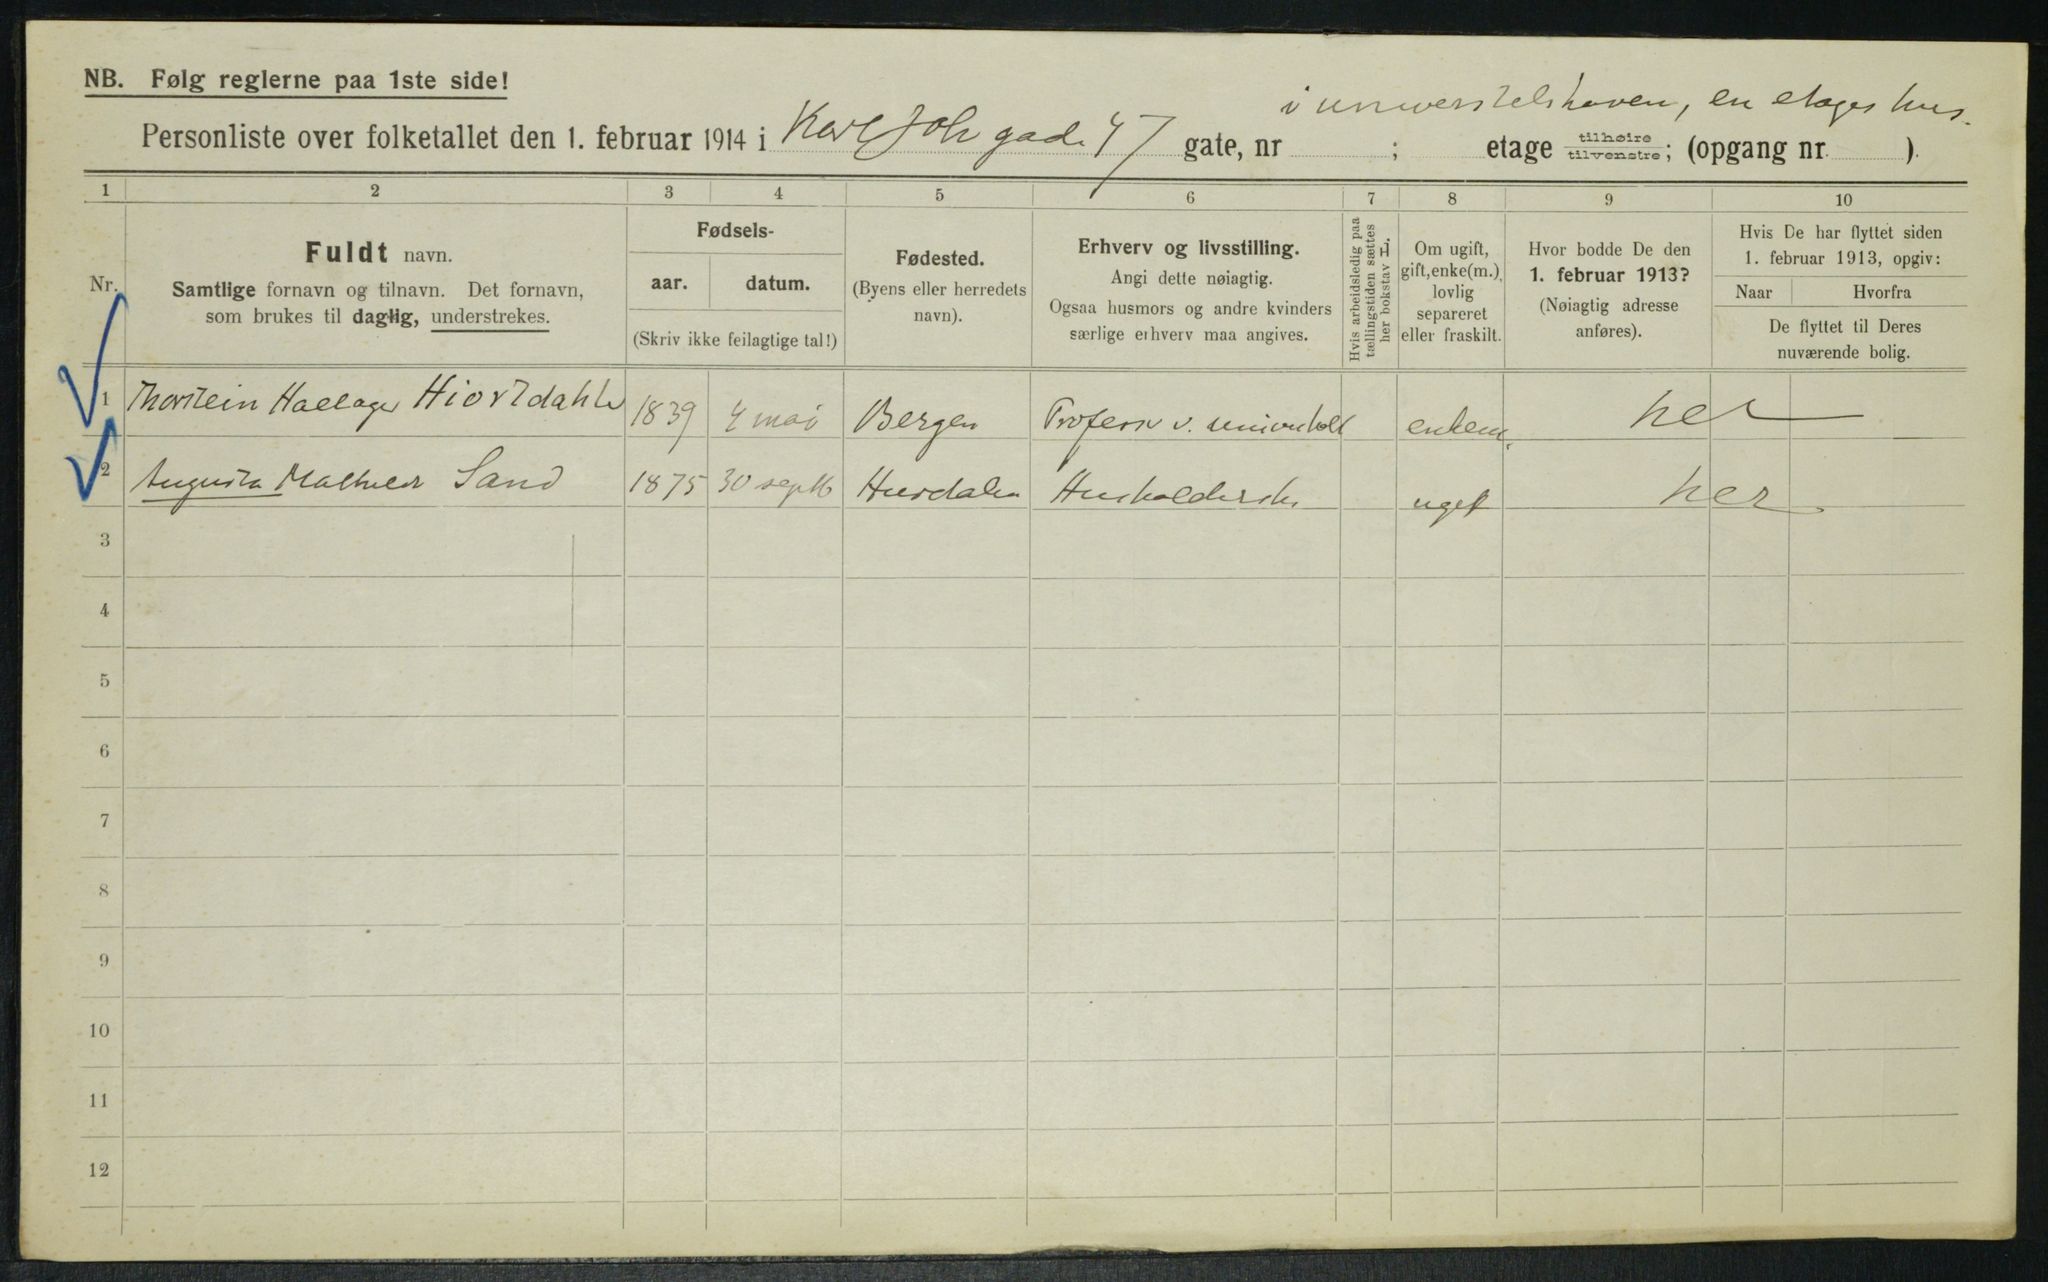 NB. Følg reglerne paa 1ste side!
i universitetshaven, en etages hus.
Personliste over folketallet den 1. februar 1914 i Karl Joh gade 47 gate, nr ; etage tilhøire tilvenstre; (opgang nr. ).
1 2 3 4 5 6 7 8 9 10
Nr.
Fuldt navn.
Samtlige fornavn og tilnavn. Det fornavn,
som brukes til daglig, understrekes.
Fødsels-
aar. datum.
(Skriv ikke feilagtige tal!)
Fødested.
(Byens eller herredets
navn).
Erhverv og livsstilling.
Angi dette nøiagtig.
Ogsaa husmors og andre kvinders
særlige erhverv maa angives.
Hvis arbeidsledig paa
tællingstiden sættes
her bokstav L.
Om ugift,
gift, enke(m.),
lovlig
separeret
eller fraskilt.
Hvor bodde De den
1. februar 1913?
(Nøiagtig adresse
anføres).
Hvis De har flyttet siden
1. februar 1913, opgiv:
Naar Hvorfra
De flyttet til Deres
nuværende bolig.
1 Thorstein Hallager Hiortdahl 1839 4 mai Bergen Profess v. enkem. her
2 Augusta Mathilde Sand 1875 30 septb Hurdalen Husholderske ugift her
3
4
5
6
7
8
9
10
11
12